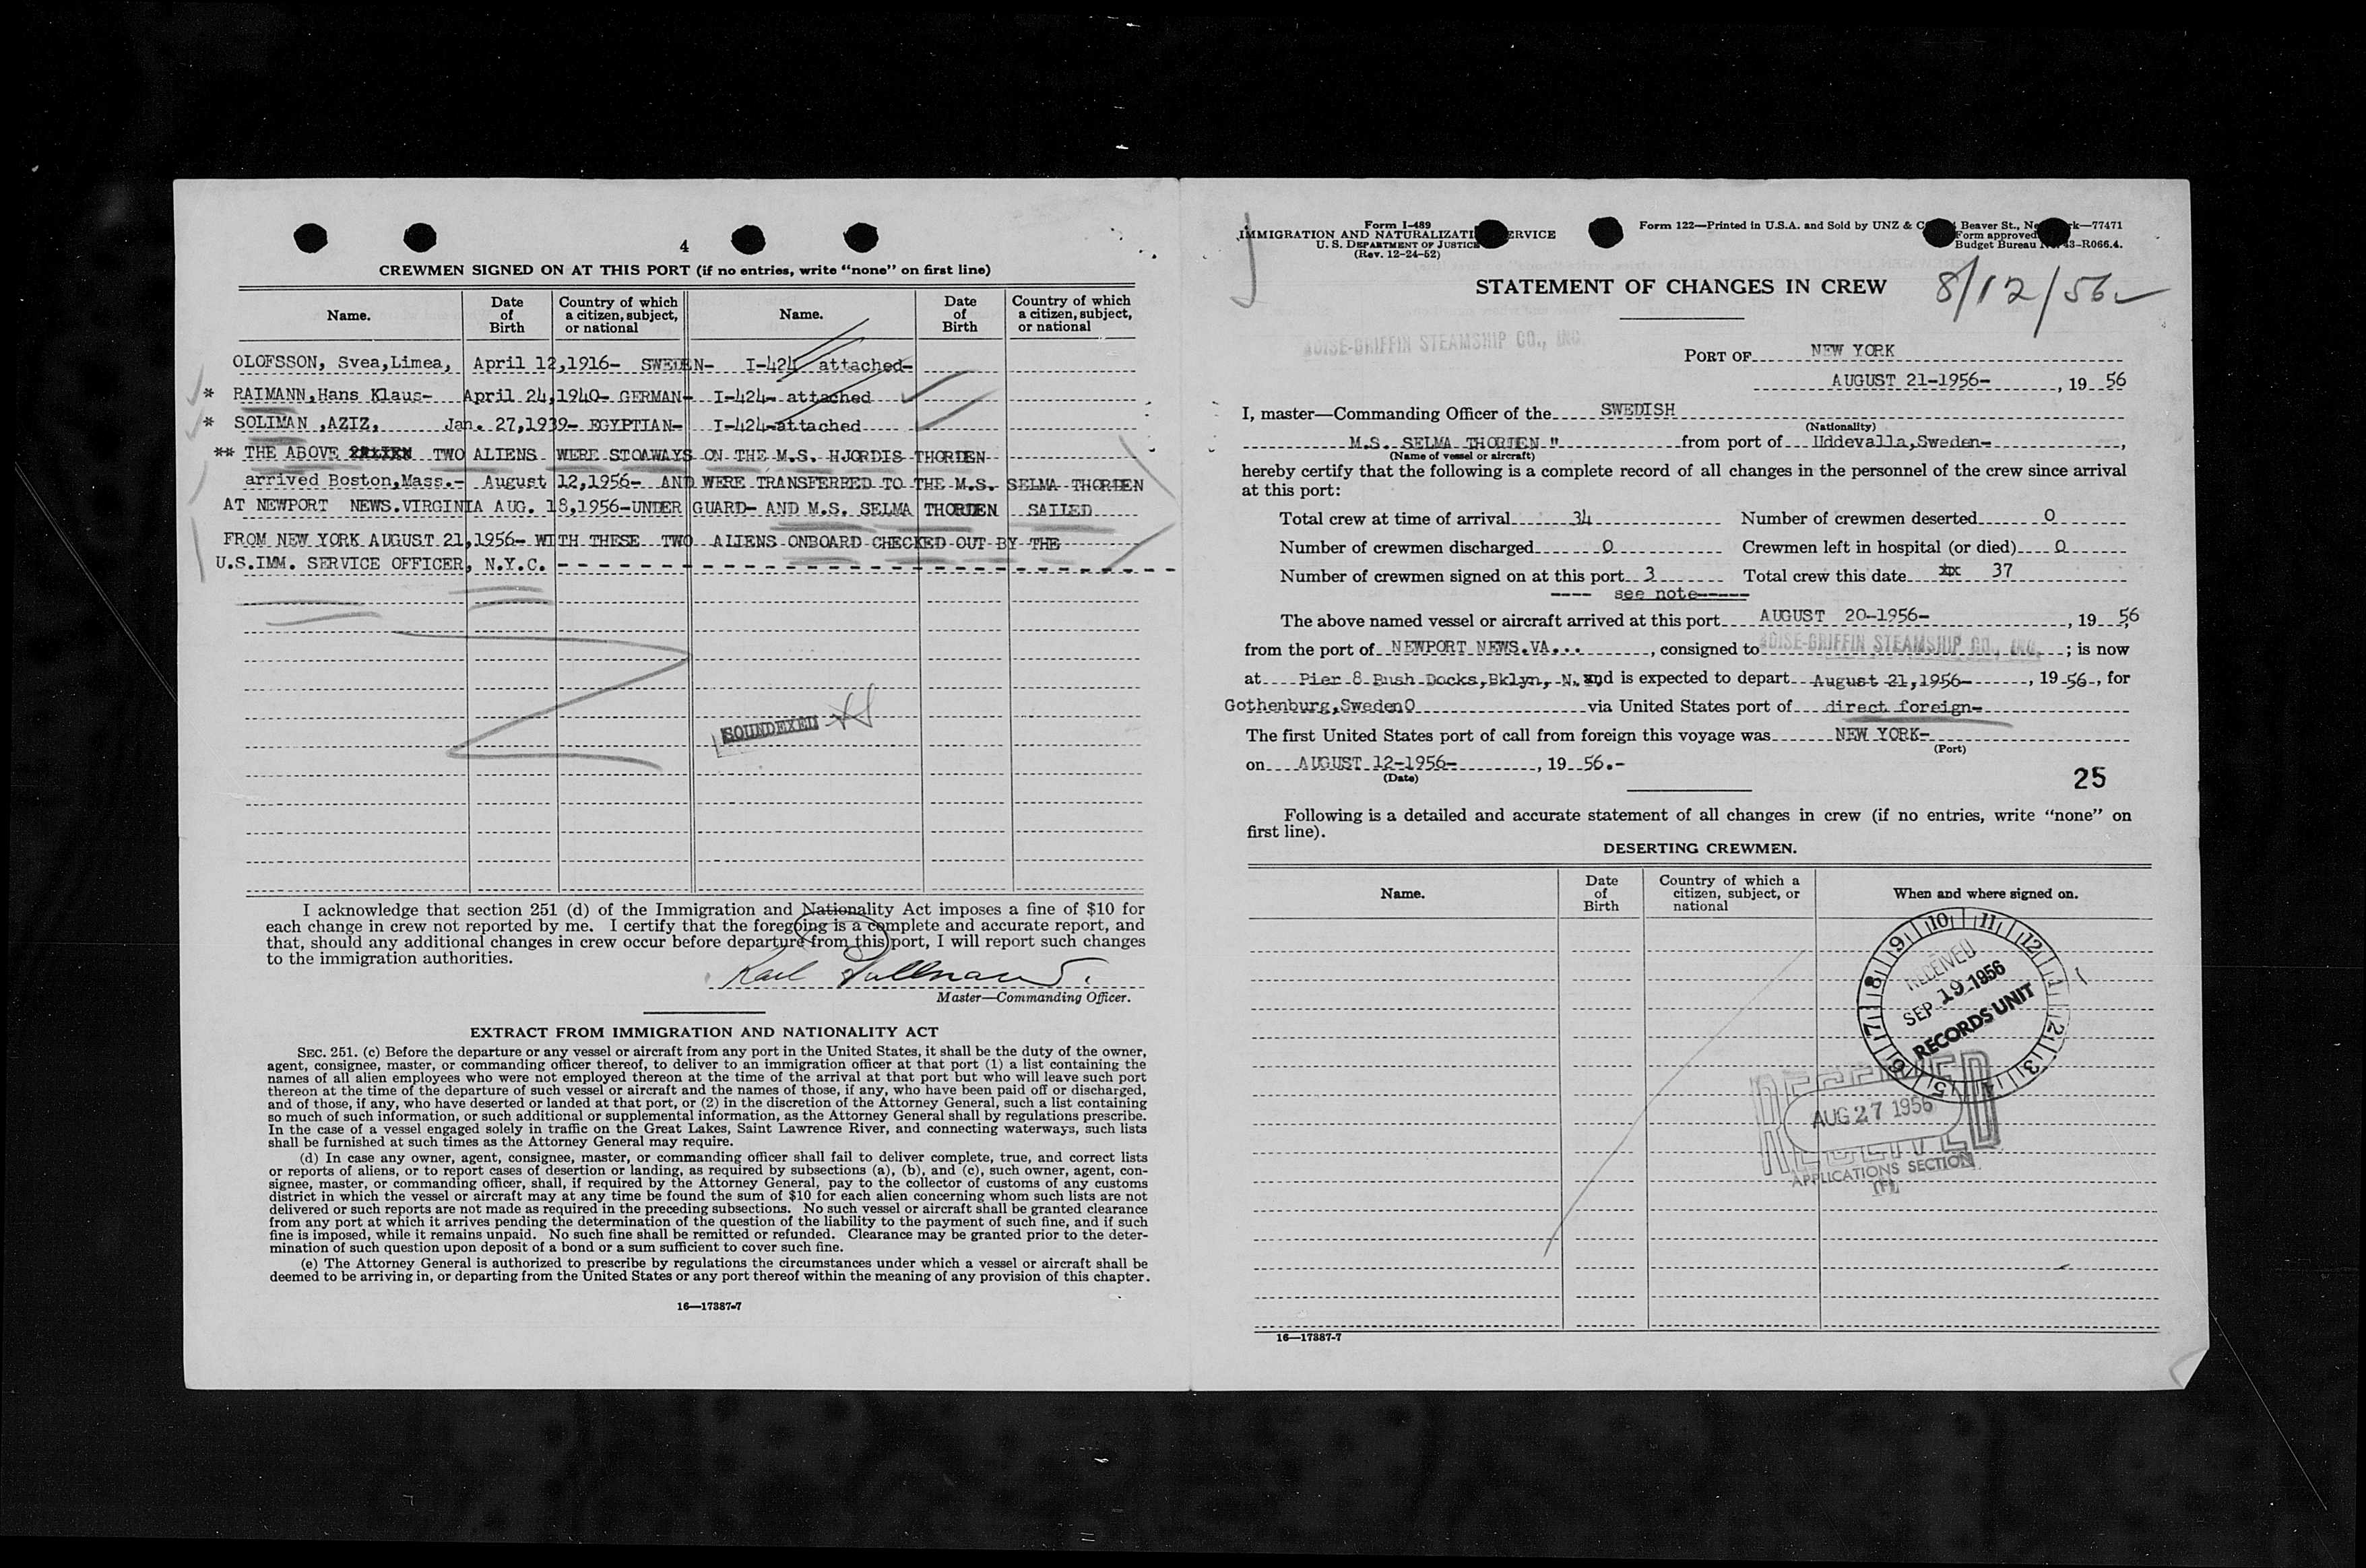 4
CREWMEN SIGNED ON AT THIS PORT (if no entries, write "none" on first line)
Name. Date of Birth Country of which a citizen, subject, or national Name. Date of Birth Country of which a citizen, subject, or national
OLOFSSON, Svea,Limea, April 12,1916- SWEDEN- I-424 attached-
* RAIMANN,Hans Klaus- April 24,1940- GERMAN- I-424- attached
* SOLIMAN ,AZIZ, Jan. 27,1939- EGYPTIAN- I-424-attached
** THE ABOVE TWO ALIENS WERE STOAWAYS ON THE M.S. HJORDIS THORDEN
arrived Boston,Mass.- August 12,1956- AND WERE TRANSFERRED TO THE M.S. SELMA THORDEN
AT NEWPORT NEWS.VIRGINIA AUG. 18,1956-UNDER GUARD- AND M.S. SELMA THORDEN SAILED
FROM NEW YORK AUGUST 21,1956- WITH THESE TWO ALIENS ONBOARD CHECKED OUT BY THE
U.S.IMM. SERVICE OFFICER, N.Y.C. - - - - - - - - - - - - - - - - - - - -
SOUNDEXED
I acknowledge that section 251 (d) of the Immigration and Nationality Act imposes a fine of $10 for
each change in crew not reported by me. I certify that the foregoing is a complete and accurate report, and
that, should any additional changes in crew occur before departure from this port, I will report such changes
to the immigration authorities.
Karl
Master—Commanding Officer.
EXTRACT FROM IMMIGRATION AND NATIONALITY ACT
SEC. 251. (c) Before the departure or any vessel or aircraft from any port in the United States, it shall be the duty of the owner,
agent, consignee, master, or commanding officer thereof, to deliver to an immigration officer at that port (1) a list containing the
names of all alien employees who were not employed thereon at the time of the arrival at that port but who will leave such port
thereon at the time of the departure of such vessel or aircraft and the names of those, if any, who have been paid off or discharged,
and of those, if any, who have deserted or landed at that port, or (2) in the discretion of the Attorney General, such a list containing
so much of such information, or such additional or supplemental information, as the Attorney General shall by regulations prescribe.
In the case of a vessel engaged solely in traffic on the Great Lakes, Saint Lawrence River, and connecting waterways, such lists
shall be furnished at such times as the Attorney General may require.
(d) In case any owner, agent, consignee, master, or commanding officer shall fail to deliver complete, true, and correct lists
or reports of aliens, or to report cases of desertion or landing, as required by subsections (a), (b), and (c), such owner, agent, con-
signee, master, or commanding officer, shall, if required by the Attorney General, pay to the collector of customs of any customs
district in which the vessel or aircraft may at any time be found the sum of $10 for each alien concerning whom such lists are not
delivered or such reports are not made as required in the preceding subsections. No such vessel or aircraft shall be granted clearance
from any port at which it arrives pending the determination of the question of the liability to the payment of such fine, and if such
fine is imposed, while it remains unpaid. No such fine shall be remitted or refunded. Clearance may be granted prior to the deter-
mination of such question upon deposit of a bond or a sum sufficient to cover such fine.
(e) The Attorney General is authorized to prescribe by regulations the circumstances under which a vessel or aircraft shall be
deemed to be arriving in, or departing from the United States or any port thereof within the meaning of any provision of this chapter.
16—17387-7
Form I-489
IMMIGRATION AND NATURALIZATI ERVICE
U. S. DEPARTMENT OF JUSTICE
(Rev. 12-24-52)
Form 122—Printed in U.S.A. and Sold by UNZ & C Beaver St., Ne rk—77471
Form approved
Budget Bureau 43-R066.4.
STATEMENT OF CHANGES IN CREW
8/12/56
BOISE-GRIFFIN STEAMSHIP CO., INC.
PORT OF NEW YORK
AUGUST 21-1956- , 19 56
I, master—Commanding Officer of the SWEDISH
(Nationality)
M.S. SELMA THORDEN " from port of Uddevalla,Sweden- ,
(Name of vessel or aircraft)
hereby certify that the following is a complete record of all changes in the personnel of the crew since arrival
at this port:
Total crew at time of arrival 34 Number of crewmen deserted 0
Number of crewmen discharged 0 Crewmen left in hospital (or died) 0
Number of crewmen signed on at this port 3 Total crew this date 37
---- see note-----
The above named vessel or aircraft arrived at this port AUGUST 20-1956- , 19 56
from the port of NEWPORT NEWS.VA... , consigned to BOISE-GRIFFIN STEAMSHIP CO., INC. ; is now
at Pier 8 Bush Docks,Bklyn, N. and is expected to depart August 21,1956- , 19 56 , for
Gothenburg,SwedenO via United States port of direct foreign-
The first United States port of call from foreign this voyage was NEW YORK-
(Port)
on AUGUST 12-1956- , 19 56.-
(Date)
25
Following is a detailed and accurate statement of all changes in crew (if no entries, write "none" on
first line).
DESERTING CREWMEN.
Name. Date of Birth Country of which a citizen, subject, or national When and where signed on.
10 11 12 1 2 3 4 5 6 7 8 9
RECEIVED
SEP 19 1956
RECORDS UNIT
RECEIVED
AUG 27 1956
APPLICATIONS SECTION
16—17387-7